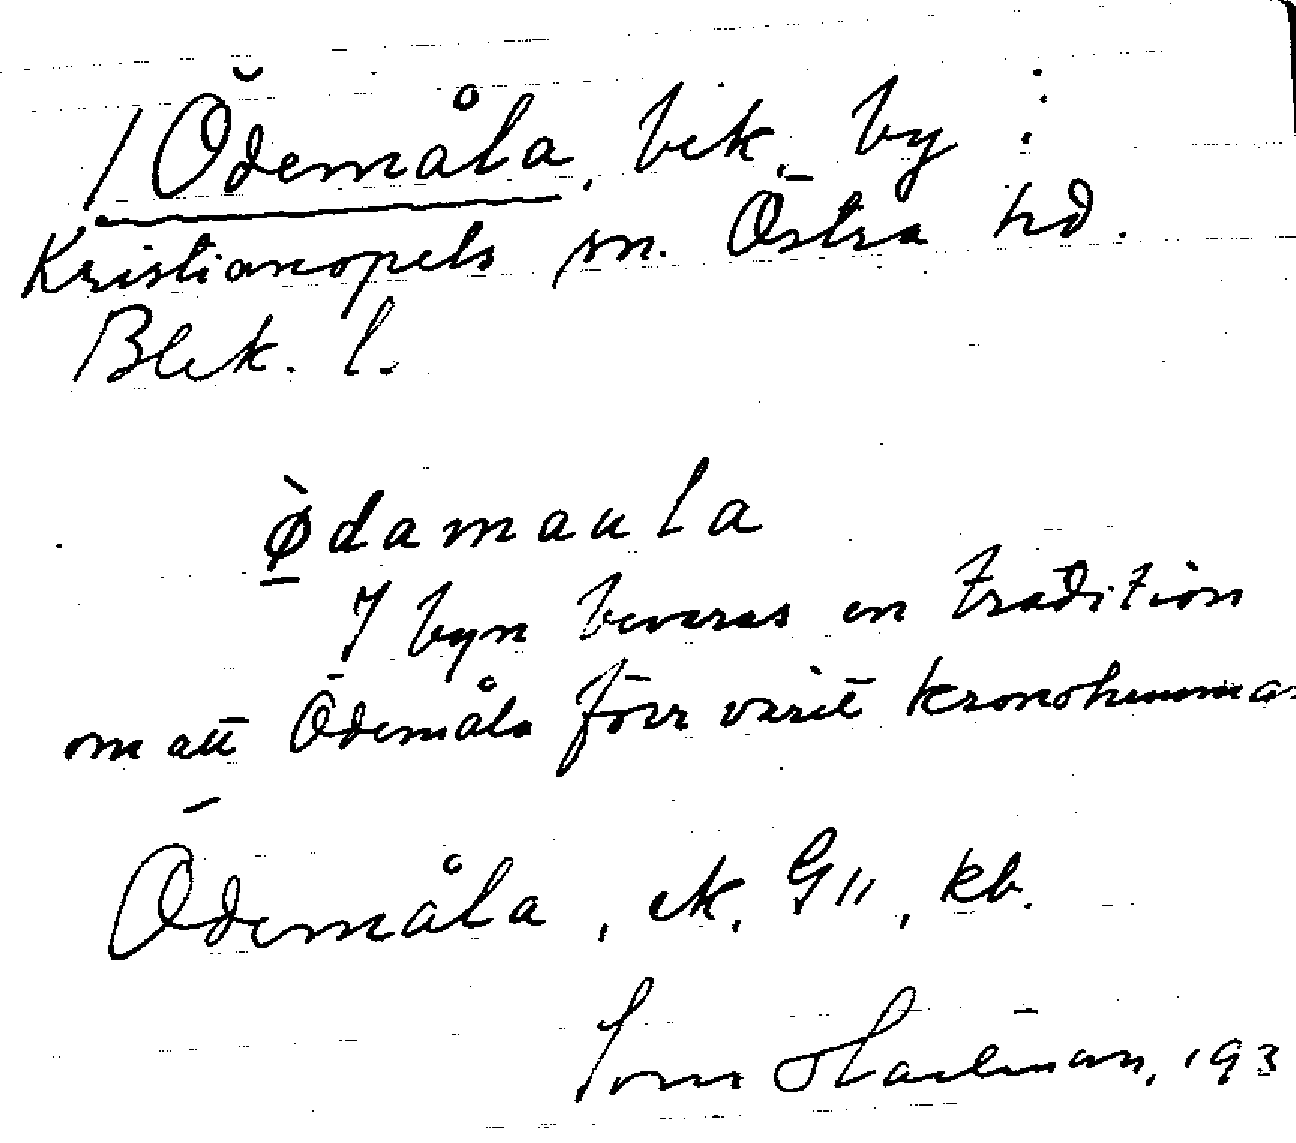 / Ödemåla, bek. by i
Kristianopels sn. Östra hd.
Blek. l.
ø̀damaula
I byn bevaras en tradition
om att Ödemåla förr varit kronohemma
Ödemåla, ek. G11, kb.
193